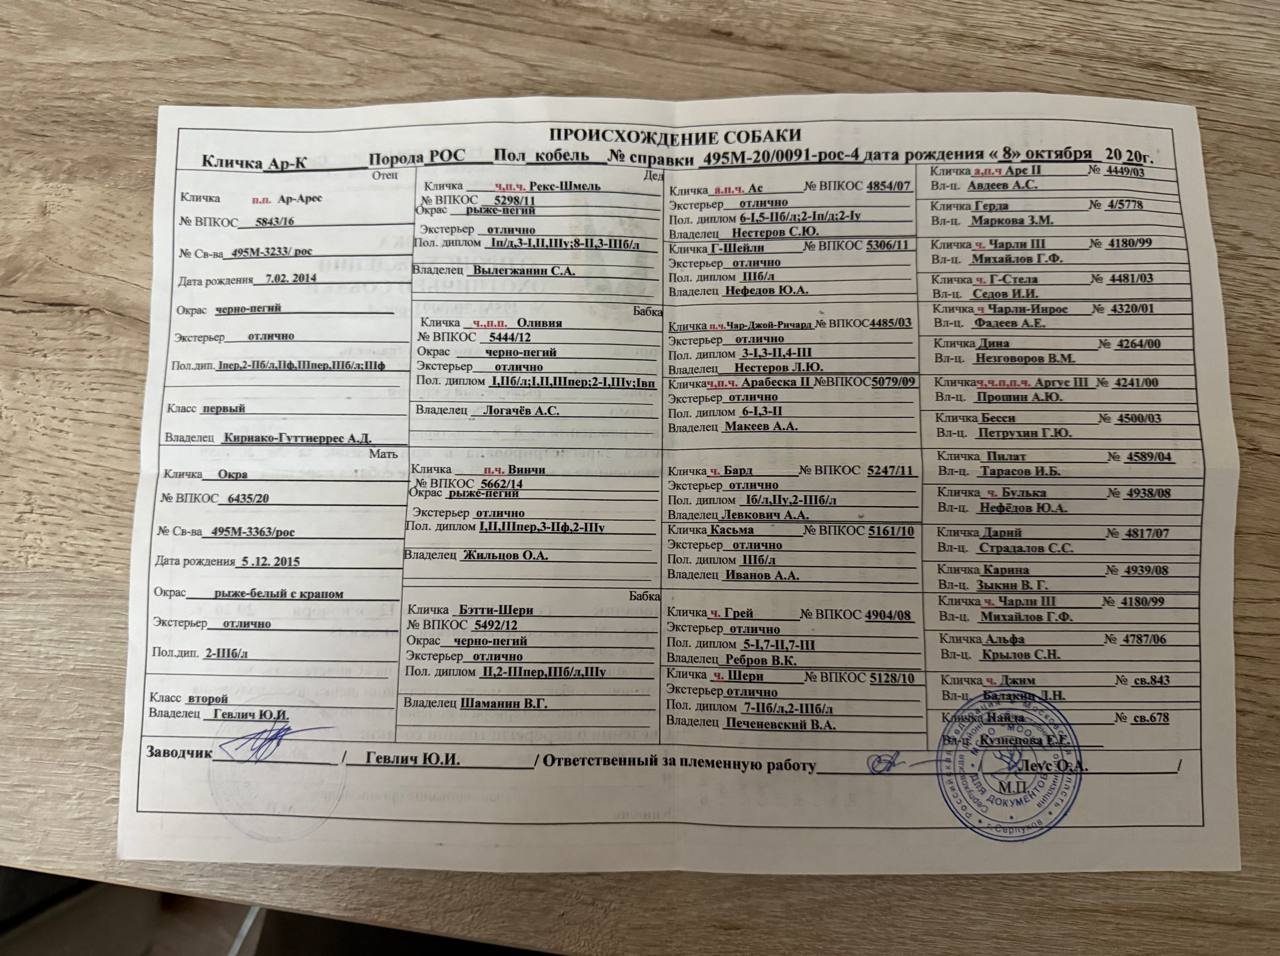 ПРОИСХОЖДЕНИЕ СОБАКИ
Кличка Ар-К Порода РОС Пол кобель № справки 495М-20/0091-рос-4 дата рождения « 8» октября 20 20г.
Отец
Кличка п.п. Ар-Арес
№ ВПКОС 5843/16
№ Св-ва 495М-3233/ рос
Дата рождения 7.02. 2014
Окрас черно-пегий
Экстерьер отлично
Пол.дип. Iпер,2-IIб/л,IIф,IIIпер,IIIб/л;IIIф
Класс первый
Владелец Кириако-Гуттиеррес А.Д.
Мать
Кличка Окра
№ ВПКОС 6435/20
№ Св-ва 495М-3363/рос
Дата рождения 5 .12. 2015
Окрас рыже-белый с крапом
Экстерьер отлично
Пол.дип. 2-IIIб/л
Класс второй
Владелец Гевлич Ю.И.
Дед
Кличка ч,п.ч. Рекс-Шмель
№ ВПКОС 5298/11
Окрас рыже-пегий
Экстерьер отлично
Пол. диплом Iп/д,3-I,II,IIIу;8-II,3-IIIб/л
Владелец Вылегжанин С.А.
Бабка
Кличка ч.,п.п. Оливия
№ ВПКОС 5444/12
Окрас черно-пегий
Экстерьер отлично
Пол. диплом I,IIб/л;I,II,IIIпер;2-I,IIIу;Iвп
Владелец Логачёв А.С.
Кличка п.ч. Винчи
№ ВПКОС 5662/14
Окрас рыже-пегий
Экстерьер отлично
Пол. диплом I,II,IIIпер,3-IIф,2-IIIу
Владелец Жильцов О.А.
Бабка
Кличка Бэтти-Шери
№ ВПКОС 5492/12
Окрас черно-пегий
Экстерьер отлично
Пол. диплом II,2-IIIпер,IIIб/л,IIIу
Владелец Шаманин В.Г.
Кличка п.ч. Ас № ВПКОС 4854/07
Экстерьер отлично
Пол. диплом 6-I,5-IIб/л;2-Iп/д;2-Iу
Владелец Нестеров С.Ю.
Кличка Г-Шейли № ВПКОС 5306/11
Экстерьер отлично
Пол. диплом IIIб/л
Владелец Нефедов Ю.А.
Кличка п.ч.Чар-Джой-Ричард № ВПКОС4485/03
Экстерьер отлично
Пол. диплом 3-I,3-II,4-III
Владелец Нестеров Л.Ю.
Кличка ч,п.ч. Арабеска II №ВПКОС5079/09
Экстерьер отлично
Пол. диплом 6-I,3-II
Владелец Макеев А.А.
Кличка ч. Бард № ВПКОС 5247/11
Экстерьер отлично
Пол. диплом Iб/л,IIу,2-IIIб/л
Владелец Левкович А.А.
Кличка Касьма № ВПКОС 5161/10
Экстерьер отлично
Пол. диплом IIIб/л
Владелец Иванов А.А.
Кличка ч. Грей № ВПКОС 4904/08
Экстерьер отлично
Пол. диплом 5-I,7-II,7-III
Владелец Ребров В.К.
Кличка ч. Шери № ВПКОС 5128/10
Экстерьер отлично
Пол. диплом 7-IIб/л,2-IIIб/л
Владелец Печеневский В.А.
Кличка а,п.ч Арс II № 4449/03
Вл-ц. Авдеев А.С.
Кличка Герда № 4/5778
Вл-ц. Маркова З.М.
Кличка ч. Чарли III № 4180/99
Вл-ц. Михайлов Г.Ф.
Кличка ч. Г-Стела № 4481/03
Вл-ц. Седов И.И.
Кличка ч Чарли-Инрос № 4320/01
Вл-ц. Фадеев А.Е.
Кличка Дина № 4264/00
Вл-ц. Незговоров В.М.
Кличка ч,ч.п,п.ч. Аргус III № 4241/00
Вл-ц. Прошин А.Ю.
Кличка Бесси № 4500/03
Вл-ц. Петрухин Г.Ю.
Кличка Пилат № 4589/04
Вл-ц. Тарасов И.Б.
Кличка ч. Булька № 4938/08
Вл-ц. Нефёдов Ю.А.
Кличка Дарий № 4817/07
Вл-ц. Страдалов С.С.
Кличка Карина № 4939/08
Вл-ц. Зыкин В. Г.
Кличка ч. Чарли III № 4180/99
Вл-ц. Михайлов Г.Ф.
Кличка Альфа № 4787/06
Вл-ц. Крылов С.Н.
Кличка ч. Джим № св.843
Вл-ц. Балакин Л.Н.
Кличка Найда № св.678
Вл-ц. Кузнецова Е.Г.
Заводчик / Гевлич Ю.И. / Ответственный за племенную работу / Леус О.А. /
М.П
ДЛЯ ДОКУМЕНТОВ
г. Серпухов